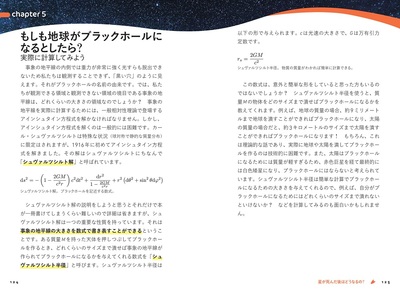 chapter 5
もしも地球がブラックホールに
なるとしたら?
実際に計算してみよう
事象の地平線の内側では重力が非常に強く光すらも脱出でき
ないため私たちは観測することできず、「黒い穴」のように見
えます。それがブラックホールの名前の由来です。では、私た
ちが観測できる領域と観測できない領域の境目である事象の地
平線は、どれくらいの大きさの領域なのでしょうか?　事象の地
平線を実際に計算するためには、一般相対性理論で登場する
アインシュタイン方程式を解かなければなりません。しかし、
アインシュタイン方程式を解くのは一般的には困難です。カー
ル・シュヴァルツシルトは特殊な状況
に限定されますが、1916年に初めてアインシュタイン方程
式を解きました。その解はシュヴァルツシルトにちなんで
「シュヴァルツシルト解」と呼ばれています。
ds² = −(1 − 2GM/c²r) c²dt² + dr²/(1 − 2GM/c²r) + r² (dθ² + sin²θdφ²)
シュヴァルツシルト解。ブラックホールを記述する数式。
シュヴァルツシルト解の説明をしようと思うとそれだけで本
が一冊書けてしまうくらい難しいので詳細は省きますが、シュ
ヴァルツシルト解は一つの重要な性質を持っています。それは
事象の地平線の大きさを数式で書き表すことができるというこ
とです。ある質量Mを持った天体を押しつぶしてブラックホー
ルを作るとき、どれくらいの大きさまで潰せば事象の地平線が
作られてブラックホールになるかを与えてくれる数式を「シュ
ヴァルツシルト半径」と呼びます。シュヴァルツシルト半径は
以下の形で与えられます。cは光速の大きさで、Gは万有引力
定数です。
r = 2GM/c²
シュヴァルツシルト半径。物質の質量がわかれば簡単に計算できる。
この数式は、意外と簡単な形をしていると思った方もいるの
ではないでしょうか?　シュヴァルツシルト半径を使うと、質
量Mの物体をどのサイズまで潰せばブラックホールになるかを
教えてくれます。例えば、地球の質量の場合、約9ミリメート
ルまで地球を潰すことができればブラックホールになり、太陽
の質量の場合だと、約3キロメートルのサイズまで太陽を潰す
ことができればブラックホールになります!　もちろん、これ
は理論的な話であり、実際に地球や太陽を潰してブラックホー
ルを作るのは技術的に困難です。また、太陽はブラックホール
になるためには質量が軽すぎるため、赤色巨星を経て最終的に
は白色矮星になり、ブラックホールにはならないと考えられて
います。シュヴァルツシルト半径は簡単な計算でブラックホー
ルになる大きさを与えてくれるので、例えば、自分が
ブラックホールになるためにはどれくらいのサイズまで潰れない
といけないか?　などを計算してみるのも面白いかもしれませ
ん。
124
星が死んだ後はどうなるの?
125